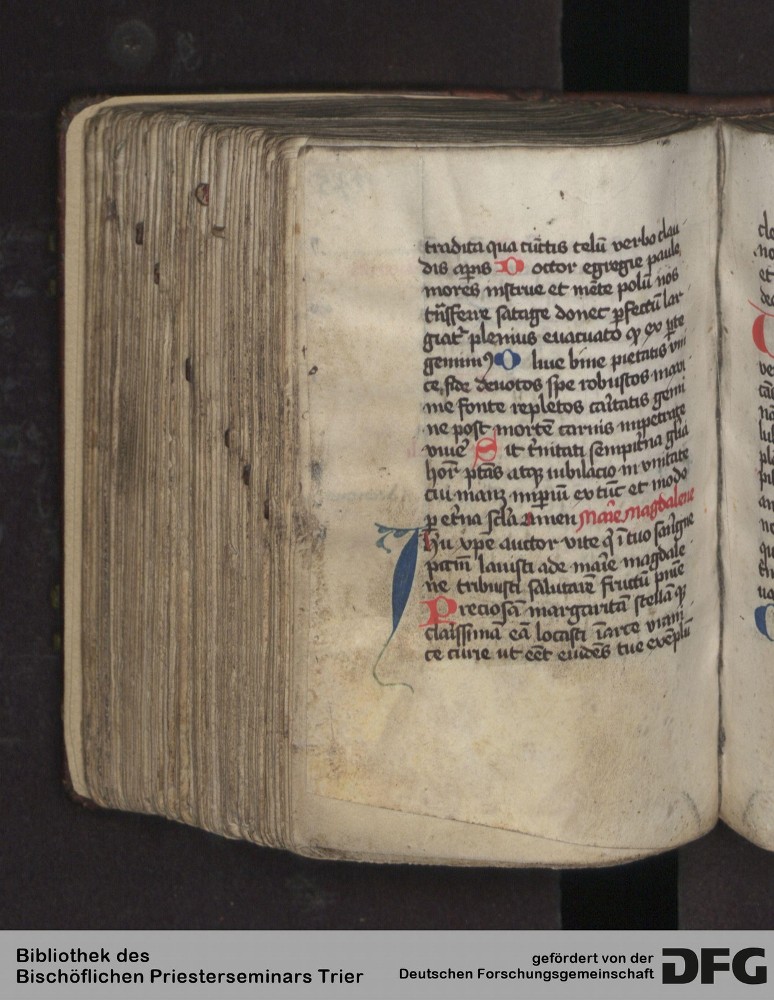 tradita qua cūctis celū verbo clau
dis aꝑis Doctor egregie paule
mores instrue et mēte polū nos
trāsferre satage donec ꝑfectū lar
giatʳ plenius evacuato ꝙ ex ꝑte
gerimꝰ Olive bine pietatis vni
ce fide devotos spe robustos maxi
me fonte repletos caritatis gemi
ne post mortē carnis impetrate
viuē Sit t̄nitati sempit̄na gl̄ia
hor̄ ptās atqꝫ iubilacio in vnitate
cui manꝫ imꝑiū ex tūc et modo
ꝑ et̄na scl̄a amen Marie magdalene
Ihū xp̄e auctor vite q̄ ī tuo sangne
pctm̄ lauisti ade marie magdale
ne tribuisti salutarē fructū pnīe
Preciosā margaritā stellā qꝫ
clarissimā eā locasti ī arce
ce curie ut eēt euidēs tue exēplū
Bibliothek des
Bischöflichen Priesterseminars Trier
gefördert von der
Deutschen Forschungsgemeinschaft DFG